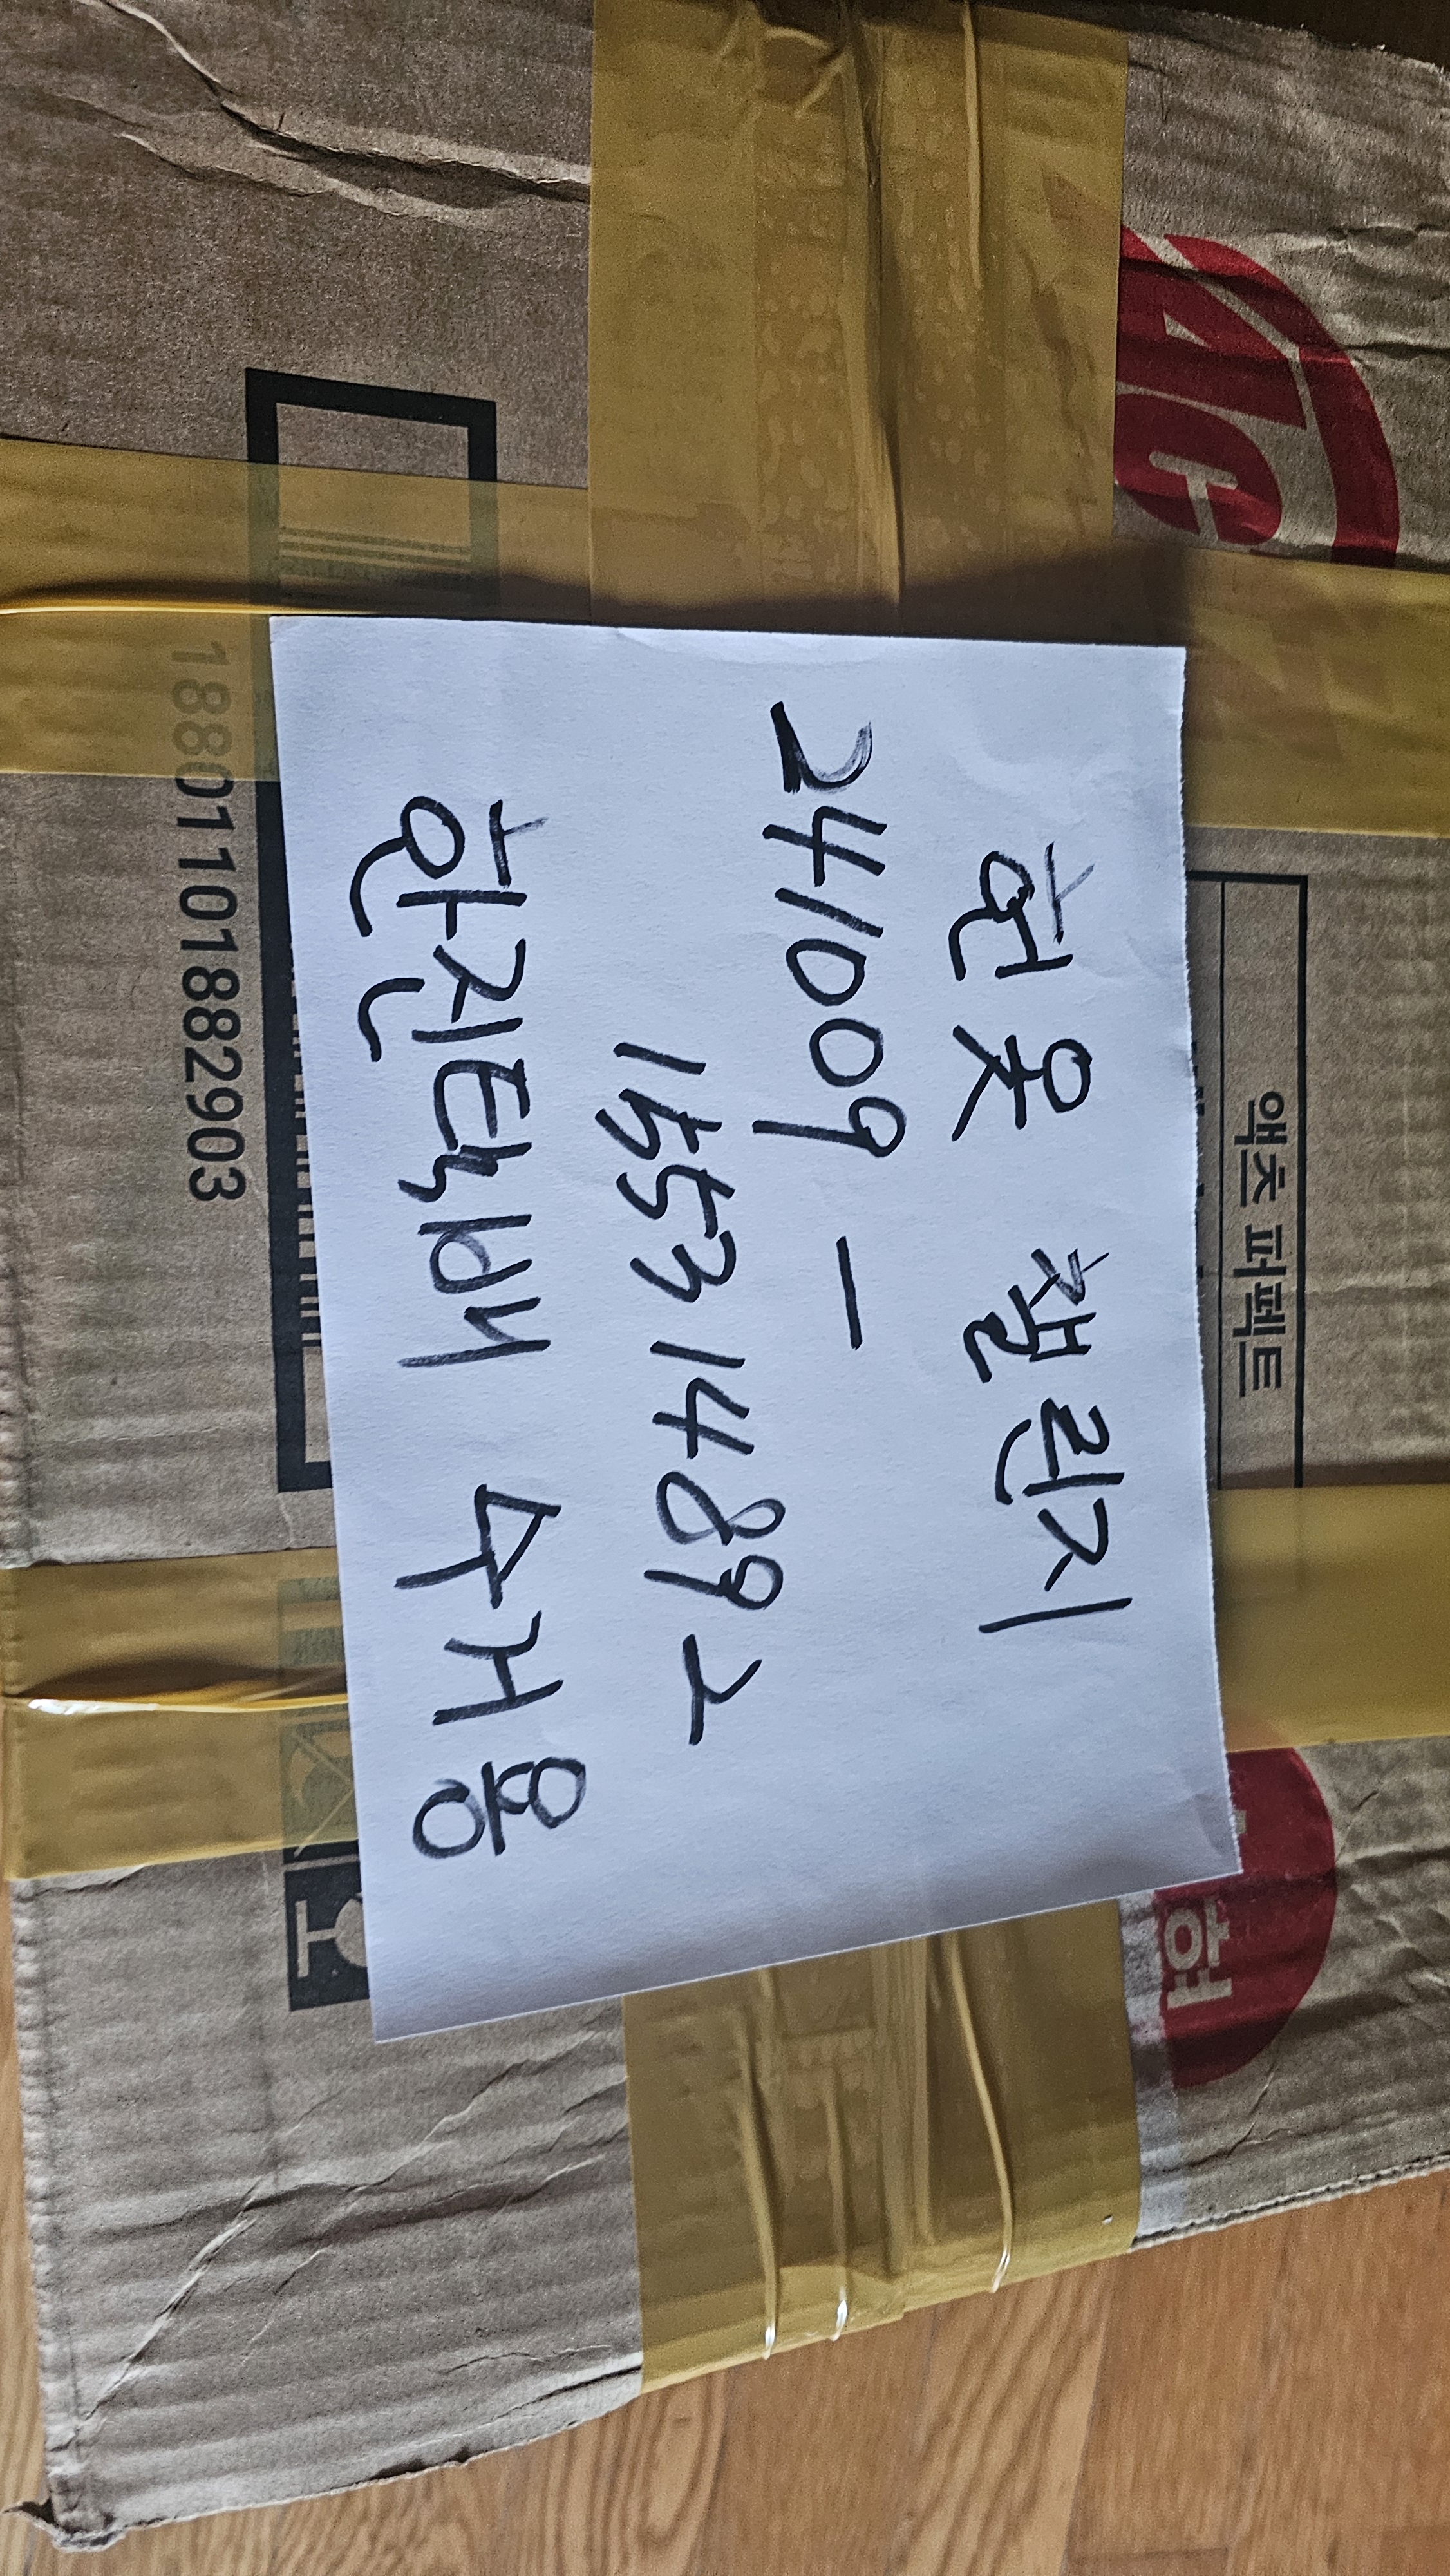 헌옷 챌린지
241009 -
1553 1489 2
한진택배 수거용
액츠 퍼펙트
18801101882903